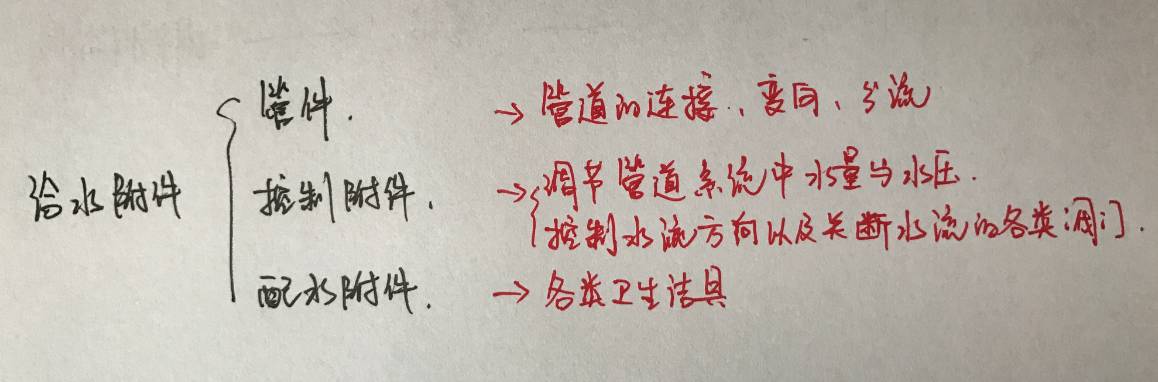 给水附件
管件. → 管道的连接、变向、分流
控制附件. → 调节管道系统中水量与水压.
控制水流方向以及关断水流的各类阀门.
配水附件. → 各类卫生洁具